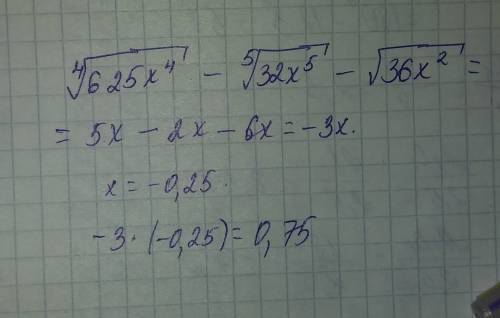 ⁴√625x⁴ − ⁵√32x⁵ − √36x² =
= 5x − 2x − 6x = −3x.
x = −0,25.
−3 · (−0,25) = 0,75